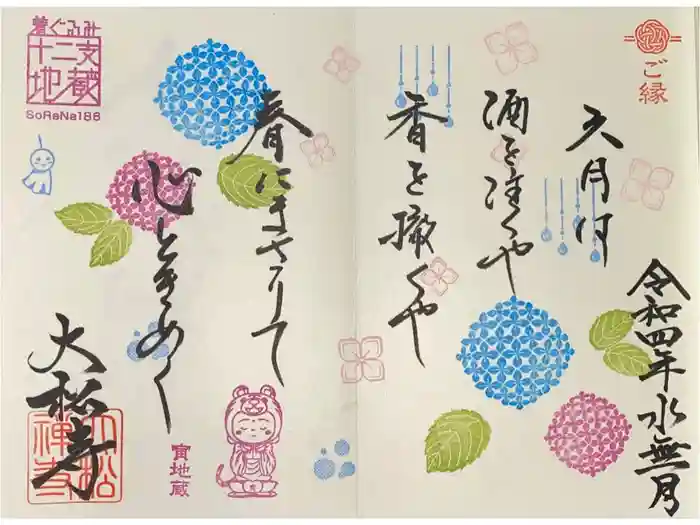 ご縁
令和四年水無月
六月は
酒を注くや
香を撒くや
春にまさりて
心ときめく
大松寺
大松
禅寺
着ぐるみ
十二支
地蔵
SoRaNa186
寅地蔵